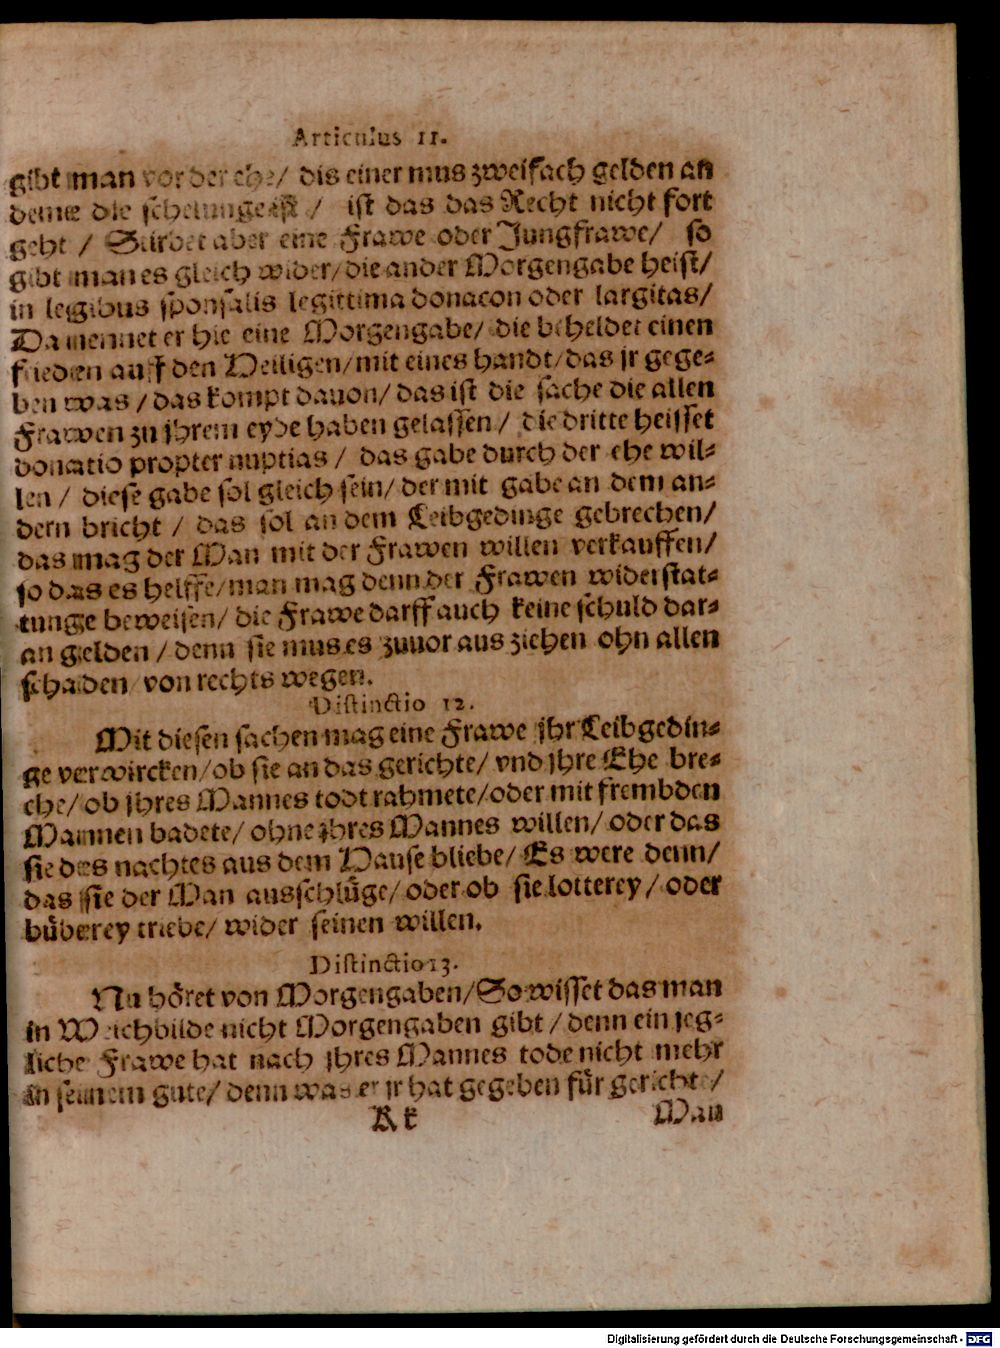 Articulus 11.
gibt man vor der ehe/ dis einer mus zweifach gelden an
deme die schelunge ist / ist das das Recht nicht fort
geht / Stirbet aber eine Frawe oder Jungfrawe/ so
gibt man es gleich wider/ die ander Morgengabe heist/
in legibus sponsalis legittima donacon oder largitas/
Da nennet er hie eine Morgengabe/ die beheldet einen
frieden auff den Heiligen/ mit eines handt/ das jr gege-
ben was / das kompt dauon/ das ist die sache die allen
Frawen zu jhrem eyde haben gelassen / die dritte heisset
donatio propter nuptias / das gabe durch der ehe wil-
len / diese gabe sol gleich sein/ der mit gabe an dem an-
dern bricht / das sol an dem Leibgedinge gebrechen/
das mag der Man mit der Frawen willen verkauffen/
so das es helffe/ man mag denn der Frawen widerstat-
tunge beweisen/ die Frawe darff auch keine schuld dar-
an gelden / denn sie mus es zuuor aus ziehen ohn allen
schaden von rechts wegen.
Distinctio 12.
Mit diesen sachen mag eine Frawe jhr Leibgedin-
ge verwircken/ ob sie an das gerichte/ vnd jhre Ehe bre-
che/ ob jhres Mannes todt rahmete/ oder mit frembden
Mannen badete/ ohne jhres Mannes willen/ oder das
sie des nachtes aus dem Hause bliebe/ Es were denn/
das sie der Man ausschlüge/ oder ob sie lotterey / oder
büberey triebe/ wider seinen willen.
Distinctio 13.
Nu höret von Morgengaben/ So wisset das man
in Weichbilde nicht Morgengaben gibt / denn ein jeg-
liche Frawe hat nach jhres Mannes tode nicht mehr
in seinem gute/ denn was er jr hat gegeben für gerichte /
Kk Man
Digitalisierung gefördert durch die Deutsche Forschungsgemeinschaft - DFG